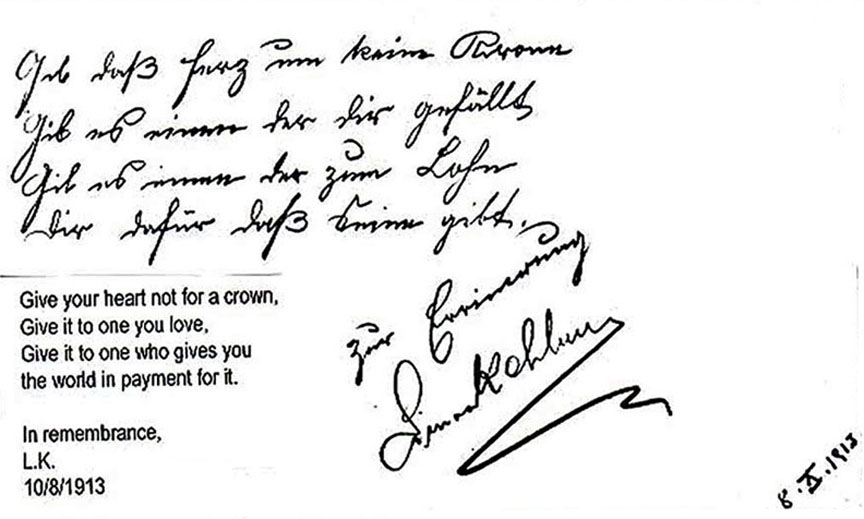 Gib daß Herz um keine Krone
Gib es einen der dir gefällt
Gib es einen der zum Lohn
Dir dafür daß Seine gibt.
zur Erinerung
8. X. 1913
Give your heart not for a crown,
Give it to one you love,
Give it to one who gives you
the world in payment for it.
In remembrance,
L.K.
10/8/1913